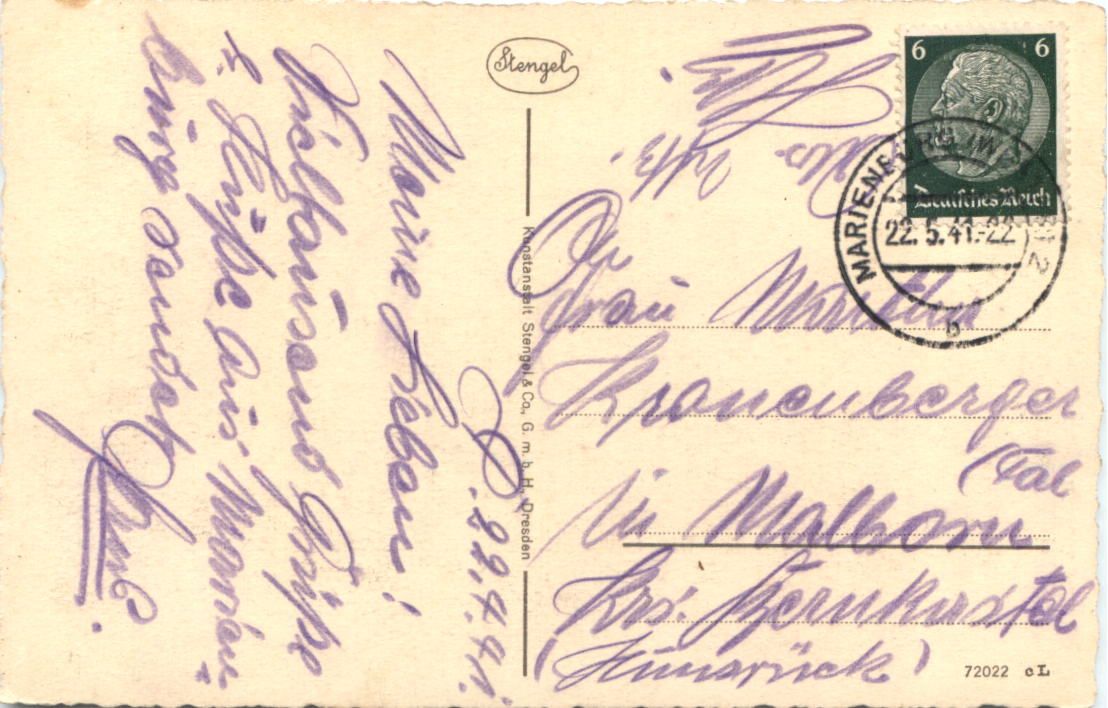 Stengel
6 6
Deutsches Reich
MARIENBURG (WESTPR) 2
22.5.41.-22
b
Kunstanstalt Stengel & Co., G. m. b. H., Dresden
D. 22.4.41.
Meine Lieben!
Viel tausend Grüße
u. Küsse aus Marien-
burg sendet
An
Frau Martha
Kronenberger
(Tal
in Malborn
Krs. Bernkastel
(Hunsrück)
72022 cL